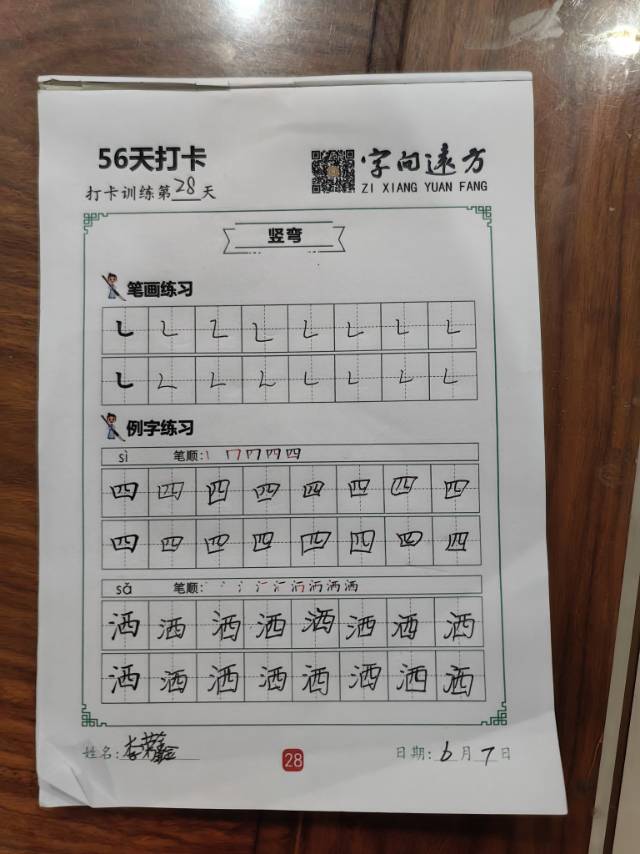 56天打卡
字向远方
打卡训练第28天
ZI XIANG YUAN FANG
竖弯
笔画练习
㇄ ㇄ ㇄ ㇄ ㇄ ㇄ ㇄ ㇄
㇄ ㇄ ㇄ ㇄ ㇄ ㇄ ㇄ ㇄
例字练习
sì 笔顺:
四 四 四 四 四 四 四 四
四 四 四 四 四 四 四 四
sǎ 笔顺:
洒 洒 洒 洒 洒 洒 洒 洒
洒 洒 洒 洒 洒 洒 洒 洒
姓名:李荣鑫
28
日期:6月7日